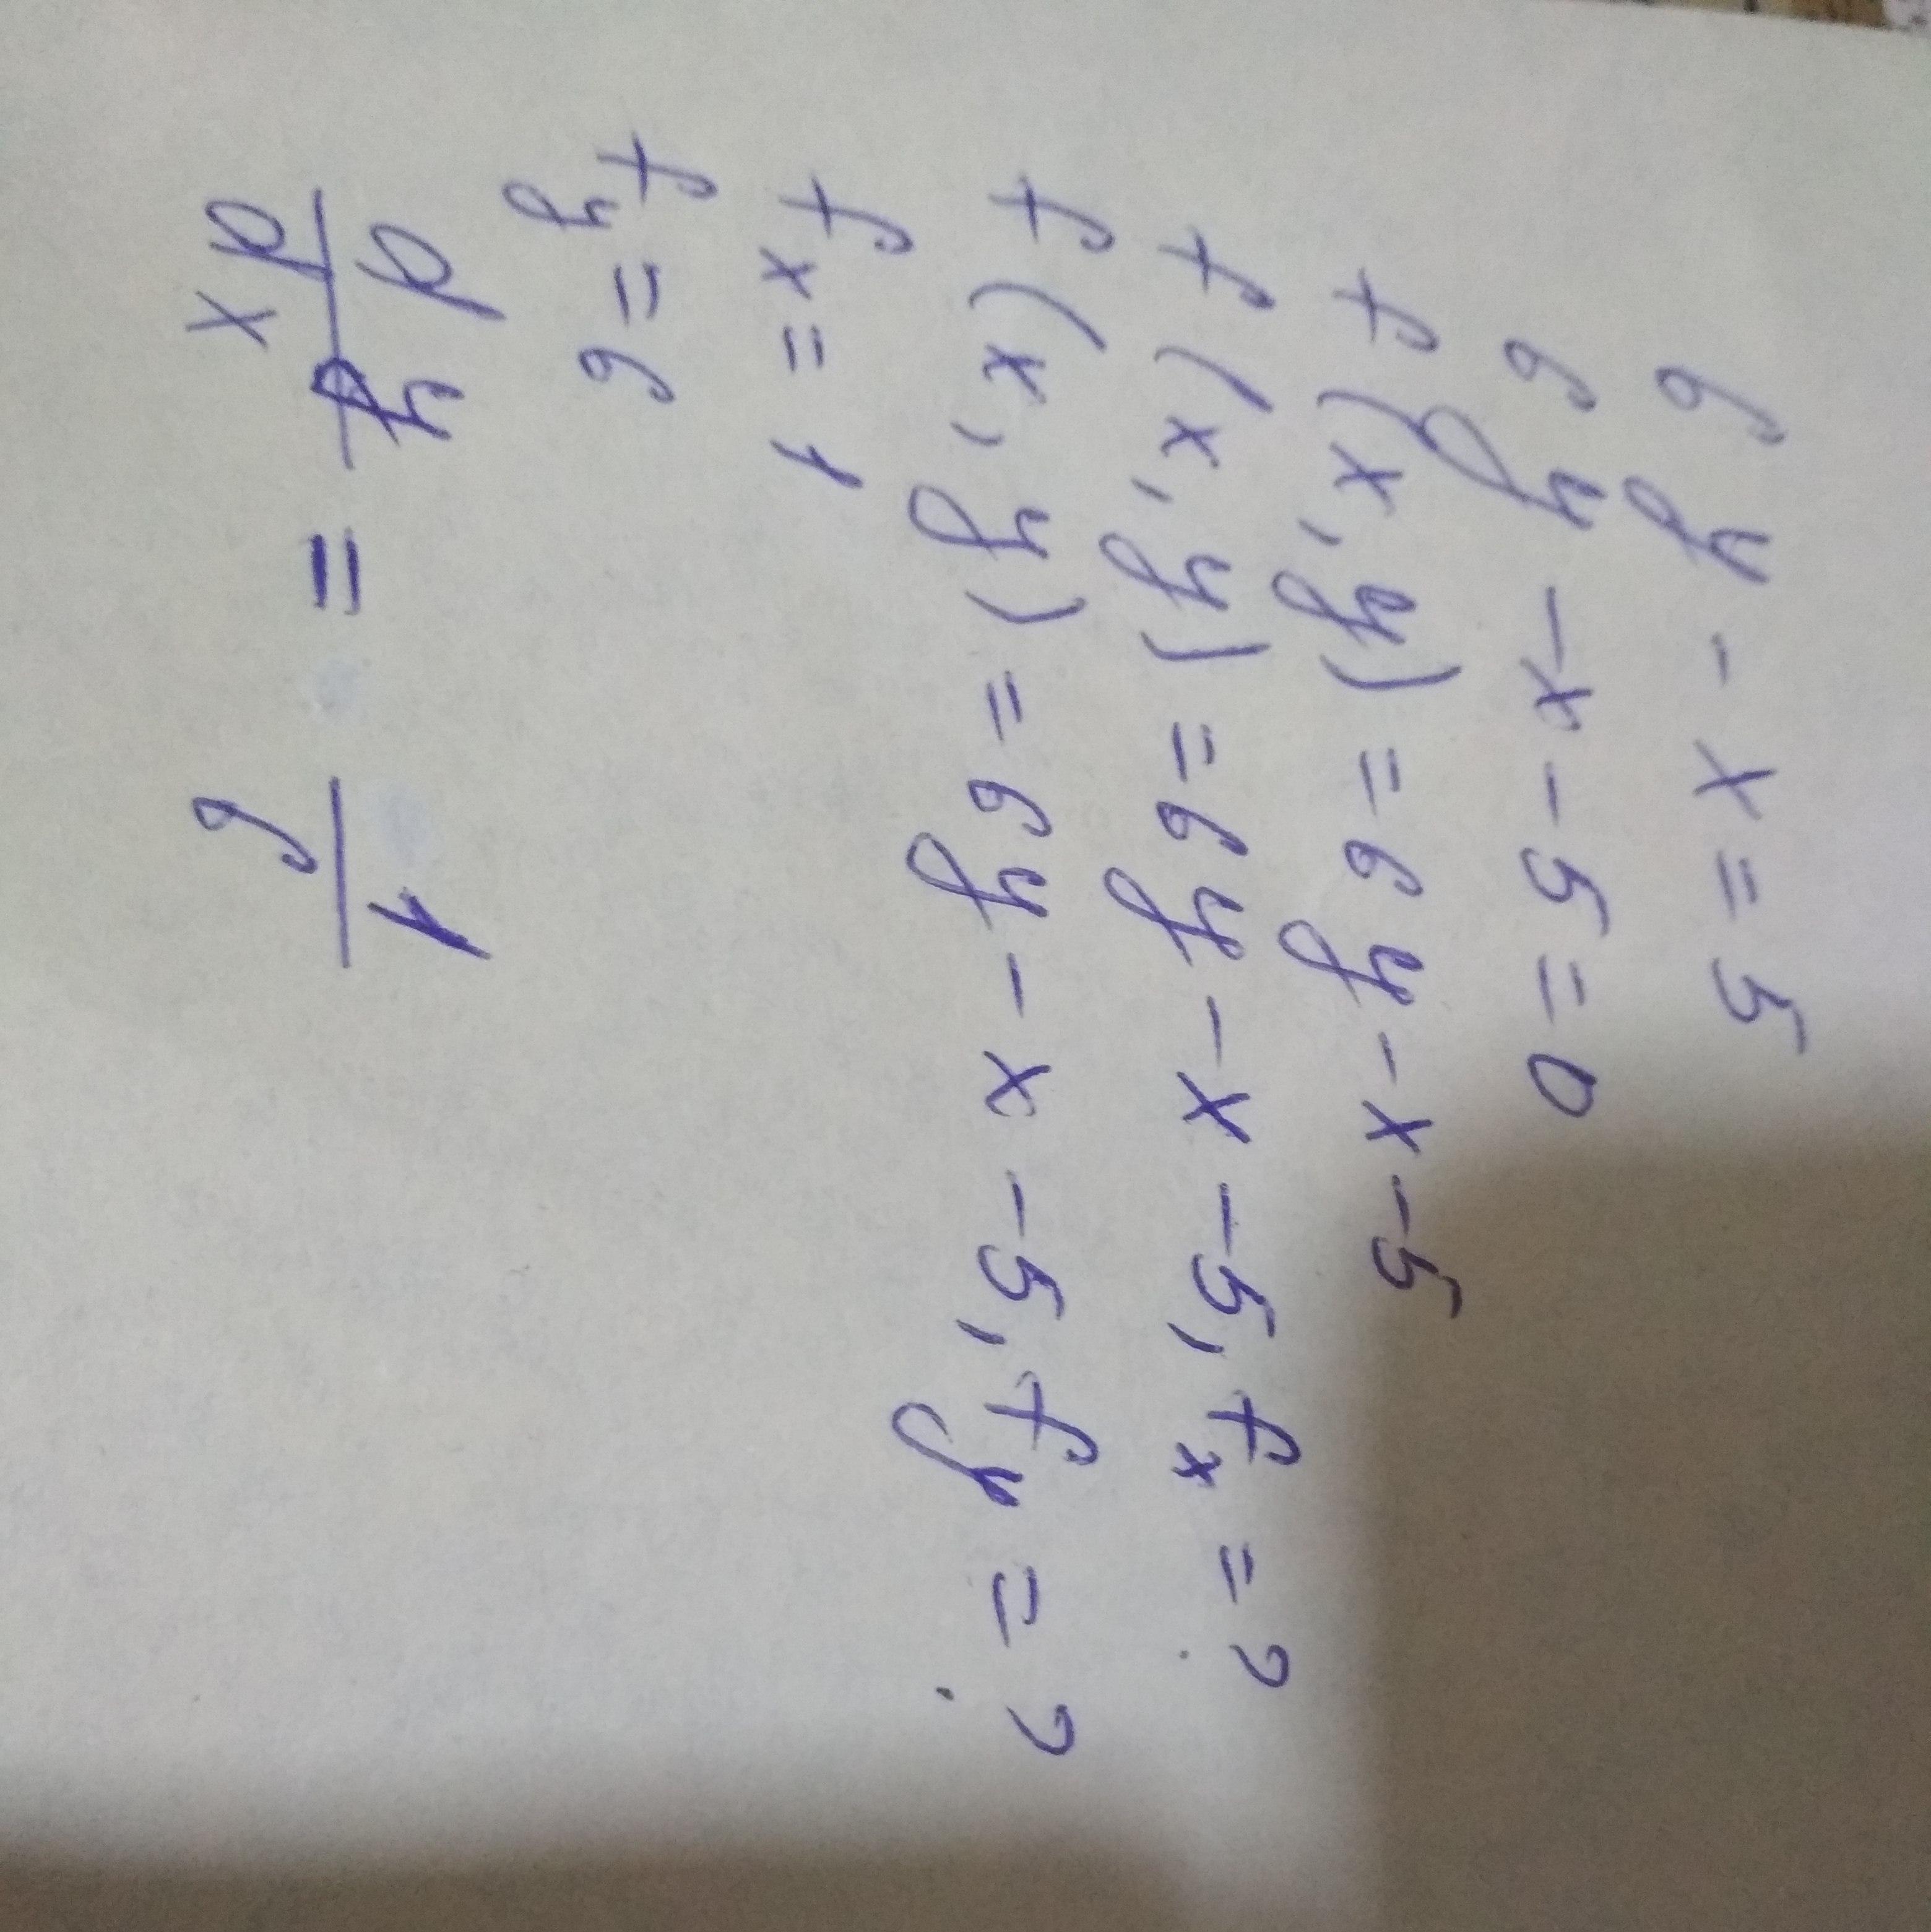 6y - x = 5
6y - x - 5 = 0
f(x, y) = 6y - x - 5
f(x, y) = 6y - x - 5, fx = ?
f(x, y) = 6y - x - 5, fy = ?
fx = 1
fy = 6
dy/dx = 1/6